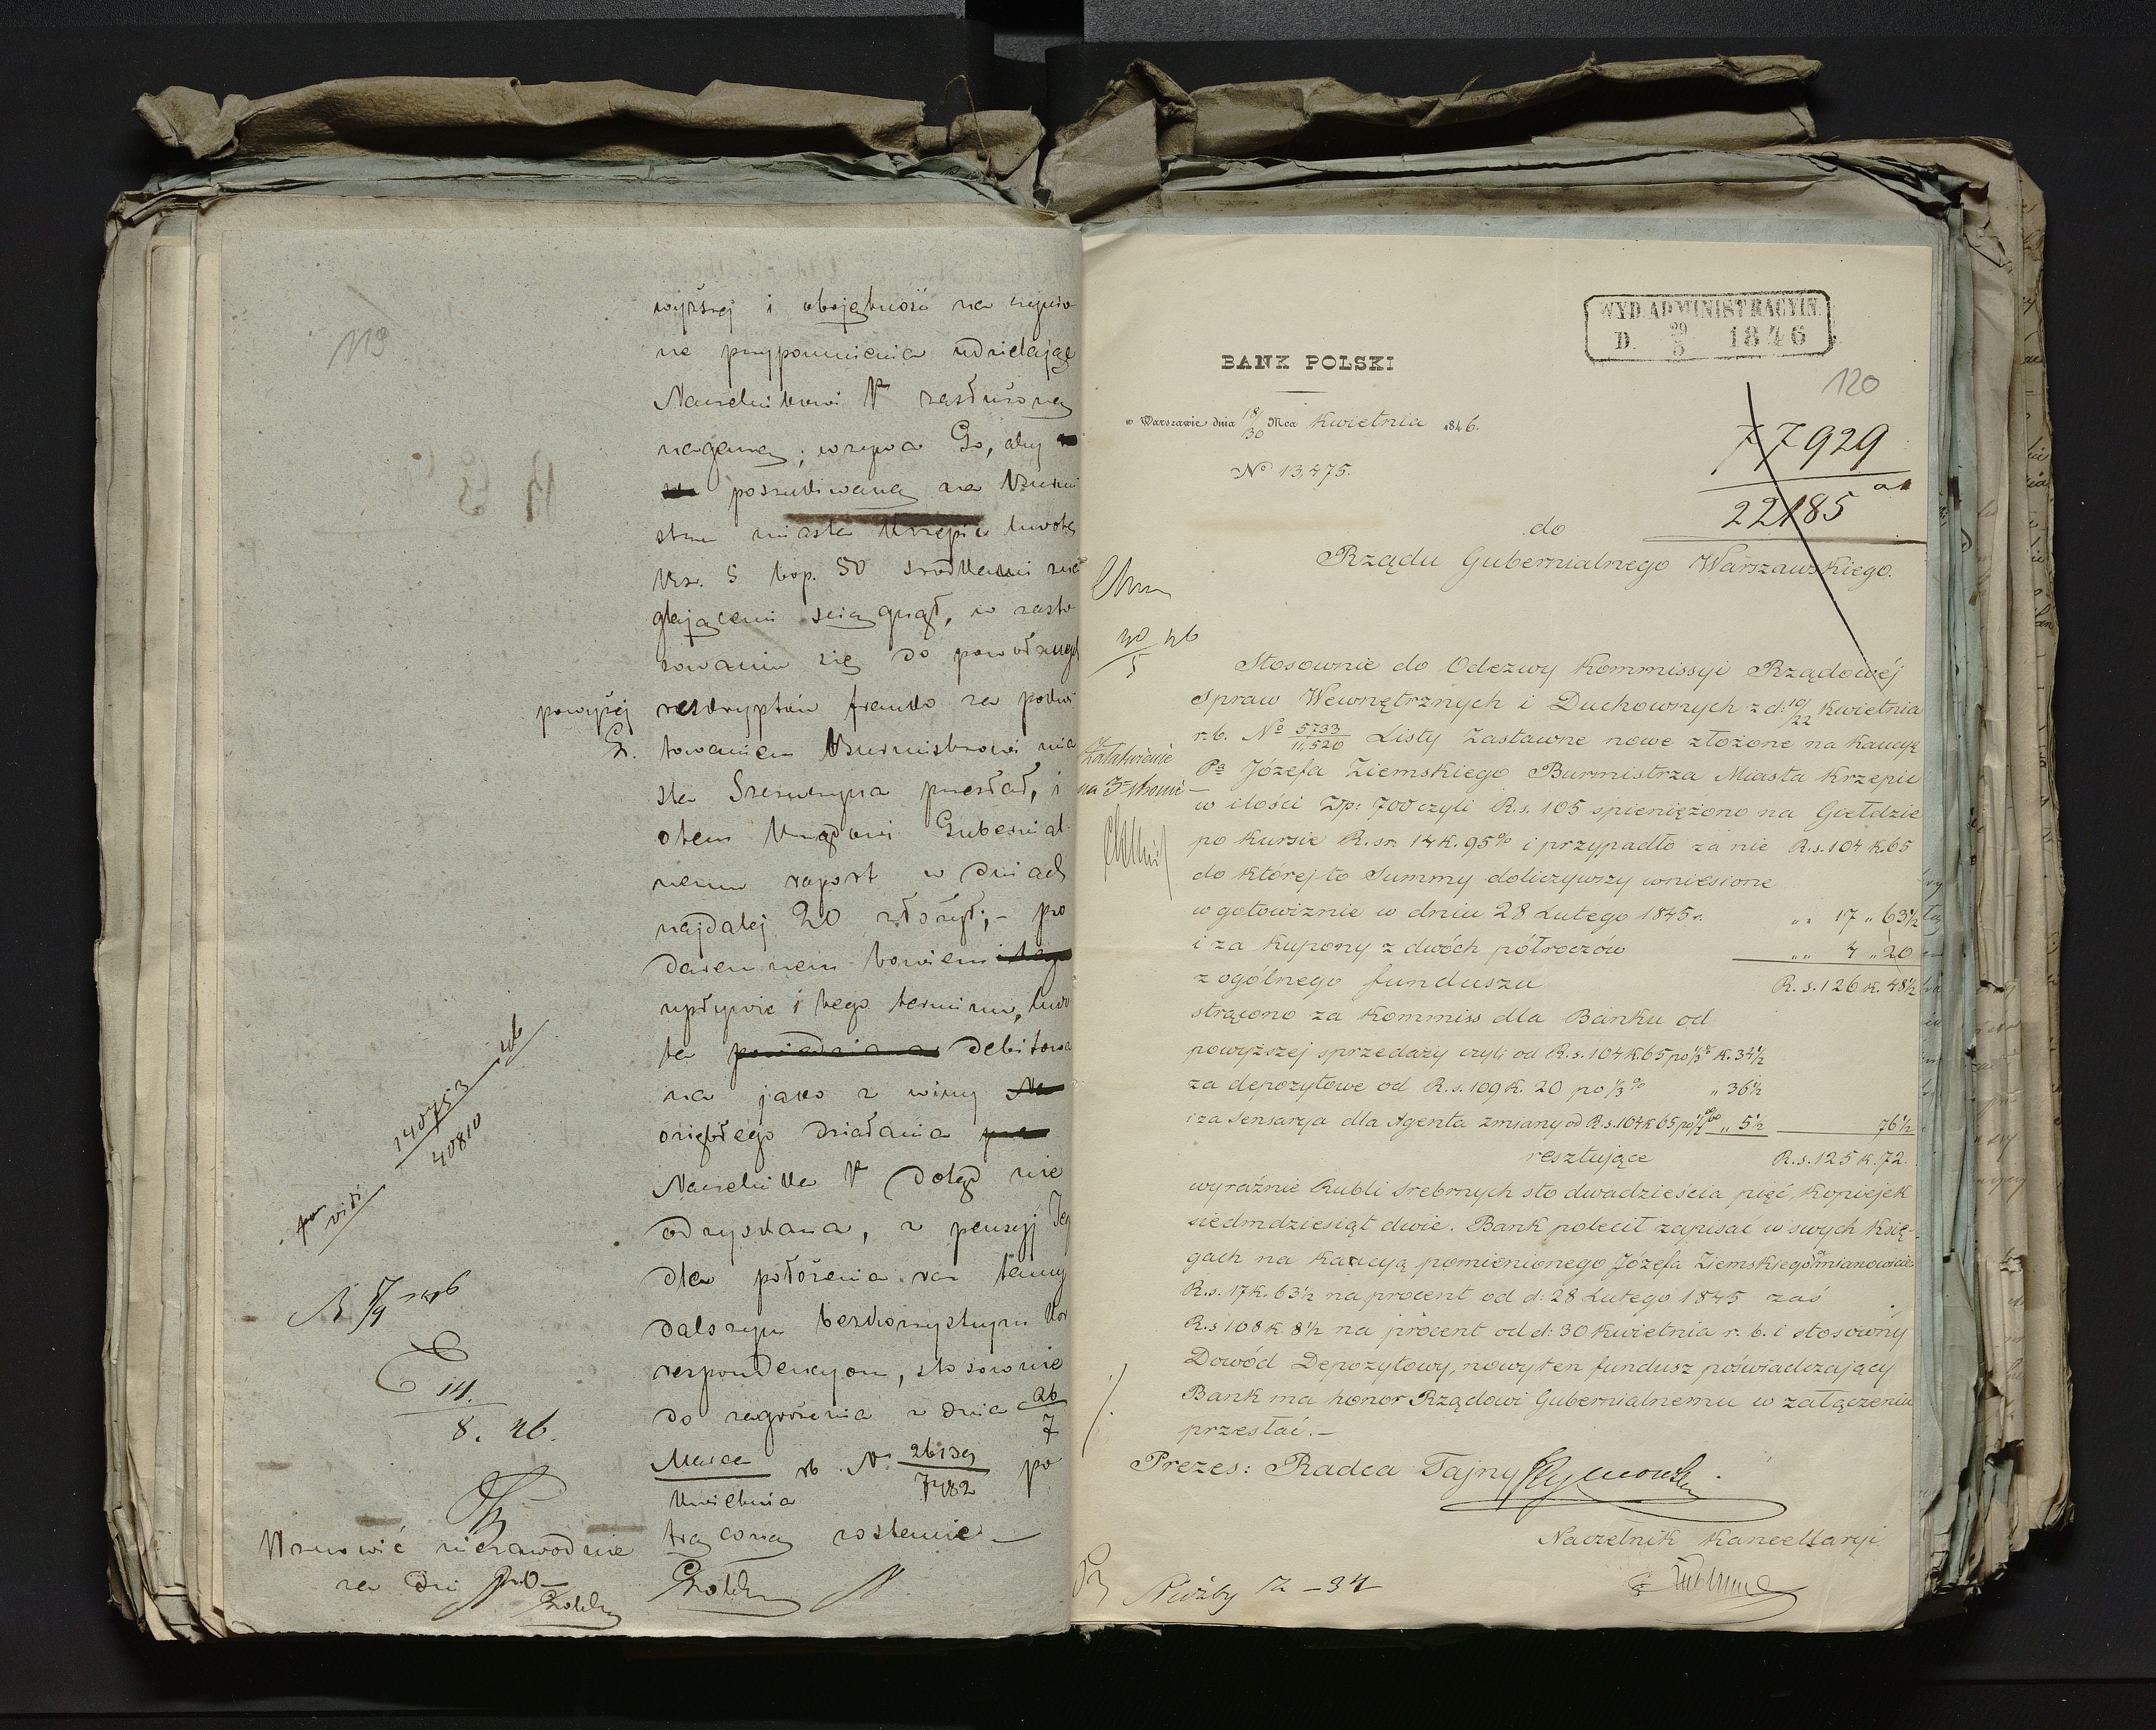 119
wyższej i obojętność na czynio
ne przypomnienia udzielając
Naczelnikowi Pt zasłużoną
naganę; wzywa Go, aby
poszukiwaną na Burmi
strzu miasta Krzepic kwotę
Rs. 5 kop. 50 środkami nie
ściągnął, w zasto
sowaniu się do powołanych
powyżej reskryptów franko za pokwi
G. towaniem Burmistrzowi mia
sta przesłał, i
o tem Rządowi Gubernial
nemu raport w dniach
najdalej 20 złożył; – po
daremnem bowiem
upływie i tego terminu, kwo
ta debitowa
na jako z winy
oziębłego działania
Naczelnika Pt dotąd nie
odzyskana, z pensyj Jego
dla położenia raz tamy
dalszym bezkorzystnym kor
respondencyom, stosownie
do zagrożenia z dnia 26/7
Marca/Kwietnia rb N 26139/7482 po
trąconą zostanie –
140753/40810
vidi
E 14.
8. 46.
Wznowić niezawodnie
za dni
BANK POLSKI
WYD. ADMINISTRACYJN.
D. 29/5 1846
120
w Warszawie dnia 18/30 Mca Kwietnia 1846.
No 13,475.
77929
22185
do
Rządu Gubernialnego Warszawskiego.
Stosownie do Odezwy Kommissyi Rządowéj
Spraw Wewnętrznych i Duchownych z d: 10/22 Kwietnia
r. b. No 5733/11,520 Listy Zastawne nowe złożone na kaucyę
Pa Józefa Ziemskiego Burmistrza Miasta Krzepic
Załatwienie
na 3. stronie
w ilości Złp: 700 czyli R.s. 105 spieniężono na Giełdzie
po kursie R.sr. 14 k. 95 % i przypadło za nie R.s. 104 k. 65
do której to Summy doliczywszy wniesione
w gotowiznie w dniu 28 Lutego 1845 r. „ „ 17 „ 63½
i za kupony z dwóch półroczów „ „ 4 „ 20
z ogólnego funduszu R.s. 126 k. 48½
strącono za Kommiss dla Banku od
powyższej sprzedaży czyli od R.s. 104 k. 65 po ⅓ % k. 34½
za depozytowe od R.s. 109 k. 20 po ⅓ % „ 36½
i za Sensarją dla Agenta zmiany od R.s. 104 k 65 po ½ %0 „ 5½ 76½
resztujące R.s. 125 k. 72.
wyraźnie Rubli srebrnych sto dwadzieścia pięć, kopiejek
siedmdziesiąt dwie. Bank polecił zapisać w swych Księ-
gach na kaucyą pomienionego Józefa Ziemskiego mianowicie
R.s. 17 k. 63½ na procent od d: 28 Lutego 1845 zaś
R.s 108 k 8½ na procent od d: 30 Kwietnia r. b. i stosowny
Dowód Depozytowy, nowy ten fundusz poświadczający
Bank ma honor Rządowi Gubernialnemu w załączeniu
przesłać. –
Prezes: Radca Tajny
Naczelnik Kancellaryi